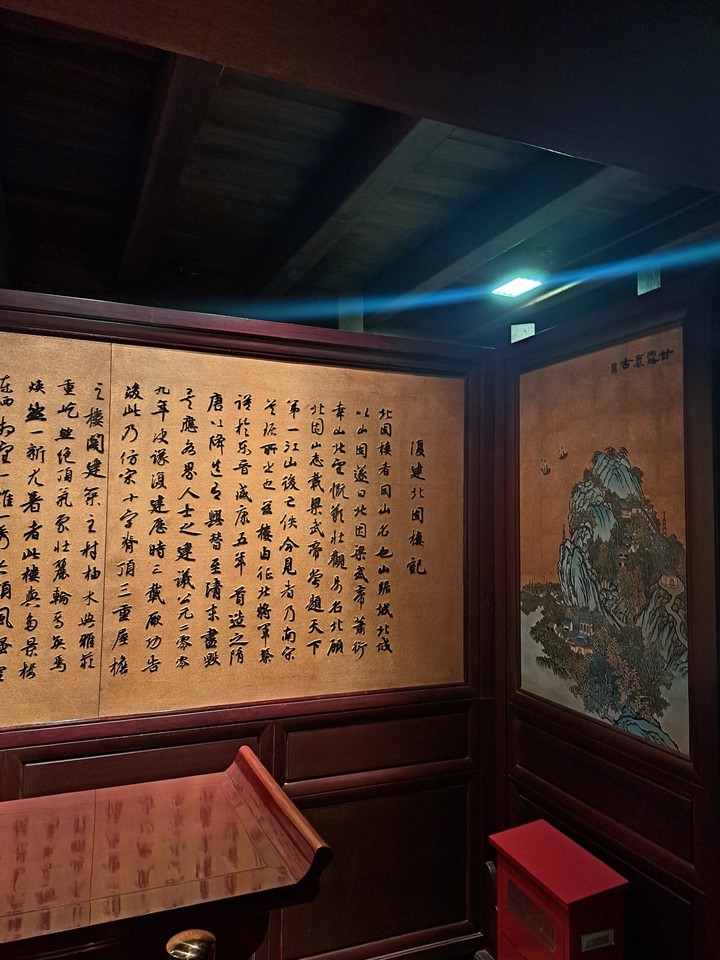 復建北固樓記
北固樓者因山名也山踞城北故
以山固遂曰北固梁武帝蕭衍
幸山北望慨歎壯觀易名北顧
北固山志載梁武帝嘗題天下
第一江山後已佚今見者乃南宋
吳琚所書也茲樓由征北將軍蔡
謨於东晉咸康五年首造之隋
唐以降迭有興替至清末盡毀
爰應各界人士之建議公元二零零
九年決議復建歷時三載厥功告
竣此乃仿宋十字脊頂三重屋檐
之樓閣建築主材柚木典雅莊
重屹然絕頂氣象壯麗輪焉奐焉
煥然一新尤著者此樓與多景樓
东西相望一雄一秀
甘露懷古